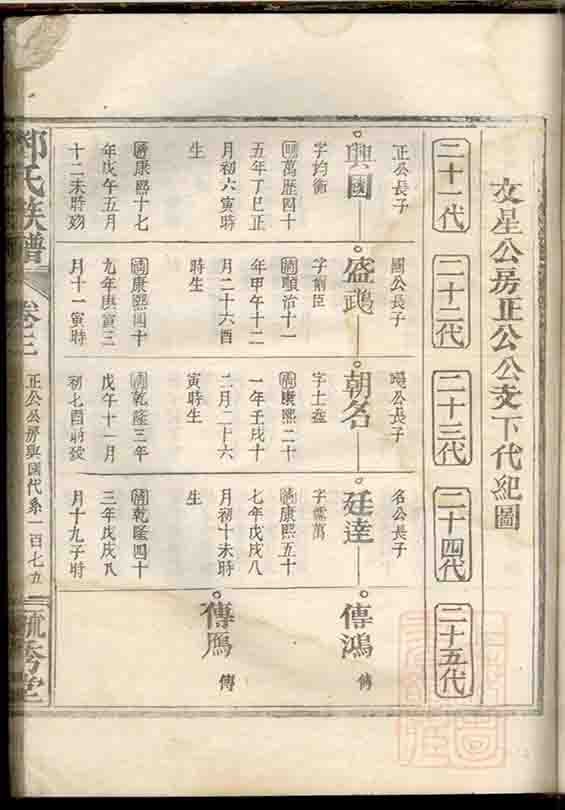 文星公房正公公支下代紀圖
二十一代
二十二代
二十三代
二十四代
二十五代
正公長子
興國
字均衡
明萬歷四十
五年丁巳正
月初六寅時
生
康熙十七
年戊午五月
十二未時歿
國公長子
盛
字
順治十一
年甲午十二
月二十六酉
時生
康熙四十
九年庚寅三
月十一寅時
公長子
朝名
字士
康熙二十
一年壬戌十
二月二十六
寅時生
乾隆三年
戊午十一月
初七酉時歿
名公長子
廷達
字儒萬
康熙五十
七年戊戌八
月初十未時
生
乾隆四十
三年戊戌八
月十九子時
傳鴻
傳
傳鴈
傳
鄧氏族譜
卷三
正公公房興國代系一百七五
毓秀堂